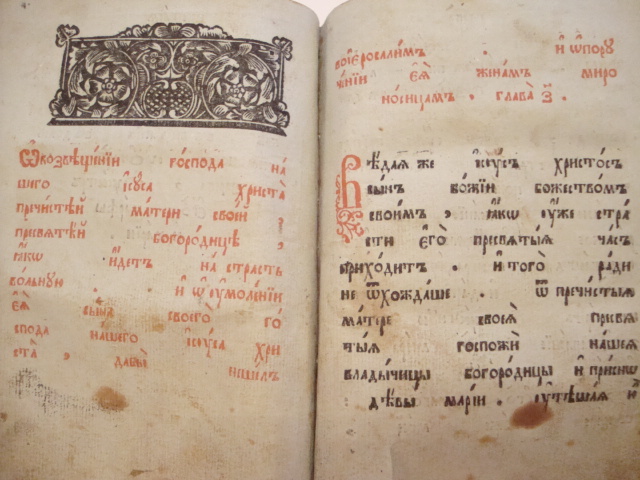 Ѡ возвѣщенїи господа на
шего і҆сꙋса христа̀
пречистѣй ма́тери своѐй
пресвятѣй богоро́дицѣ ,
ꙗ҆́кѡ и҆́детъ на́ страсть
во́льнꙋю . и҆ ѡ҆ ᲂу҆моле́нїи
є҆ѧ̀ сы́на своего̀ го́
спода на́шего і҆сꙋ́са хри
ста̀ , дабы̀ не шелъ
во і҆ерⷭ҇овали́мъ . и҆ ѡ҆ порꙋ
че́нїи є҆ѧ̀ жена́мъ мѵро
но́сицамъ . глава̀ з҃ .
Вѣ́даѧ же і҆сꙋ́съ христо́съ
сы́нъ бо́жїи божество́мъ
свои́мъ , ꙗ҆́кѡ ᲂу҆жѐ стра́
сти є҆гѡ̀ пресвѧты́ѧ ча́съ
прихо́дитъ . и҆ тогѡ̀ ра́ди
не ѿхожда́ше . ѿ пречи́стыѧ
ма́тере своеѧ̀ пресвѧ
ты́ѧ госпожѝ на́шеѧ
влады́чицы богоро́дицы и҆ при́снѡ
дѣ́вы марі́и . ᲂу҆тѣша́ѧ и҆